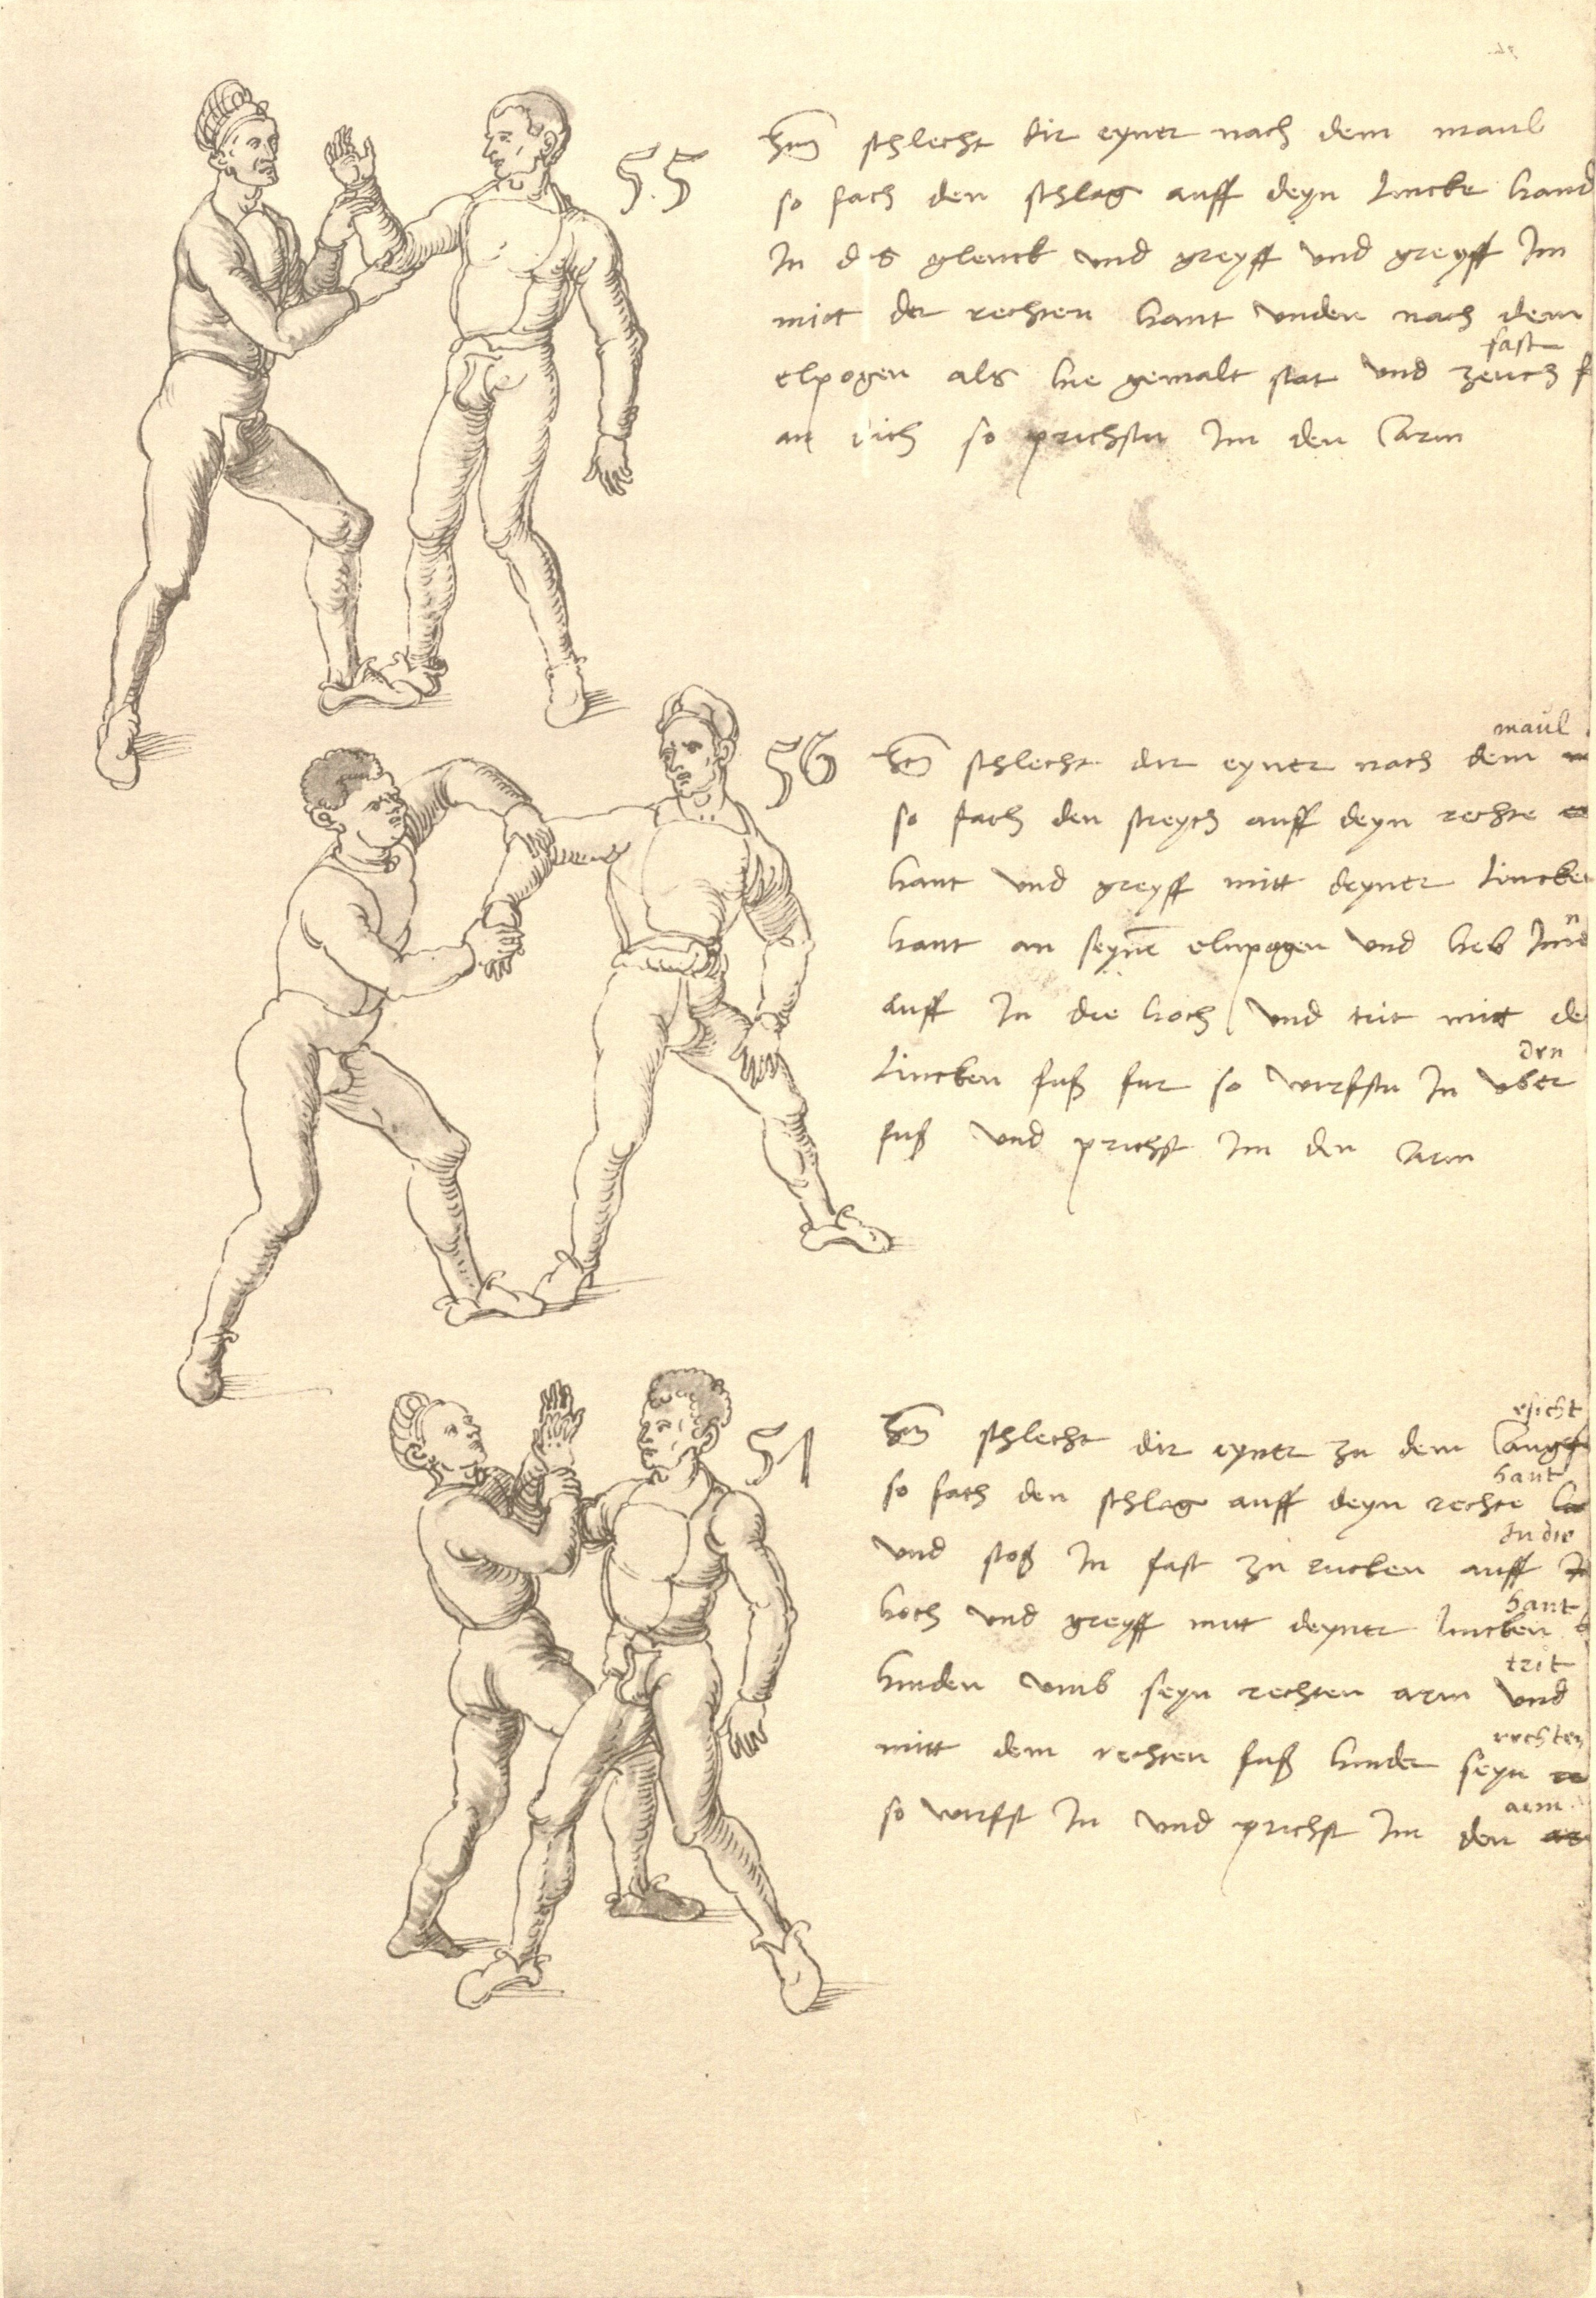 55
Itm schlecht dir eyner nach dem maul
so fach den schlag auff deyn lincke hand
In das glenck und greyff und greyff Im
mitt der rechten hant unden nach dem
fast
elpogen als hie gemalt stat und zeuch
an dich so prichstu Im den arm
56
Itm schlecht dir eyner nach dem
maul
so fach den streych auff deyn rechte
hant und greyff mitt deyner lincken
hant an seynē elnpogen und heb Im
n
auff In die hoch und trit mitt de
den
lincken fuß fur so wirfstu In uber
fuß und prichst Im den arm
57
Itm schlecht dir eyner zu dem angs
esicht
so fach den schlag auff deyn rechte
hant
und stoß In fast zu rucken auff
In die
hoch und greyff mitt deyner lincken
hant
hinden umb seyn rechten arm und
trit
mitt dem rechten fuß hinder seyn
rechten
so wirfst In und prichst Im den
arm